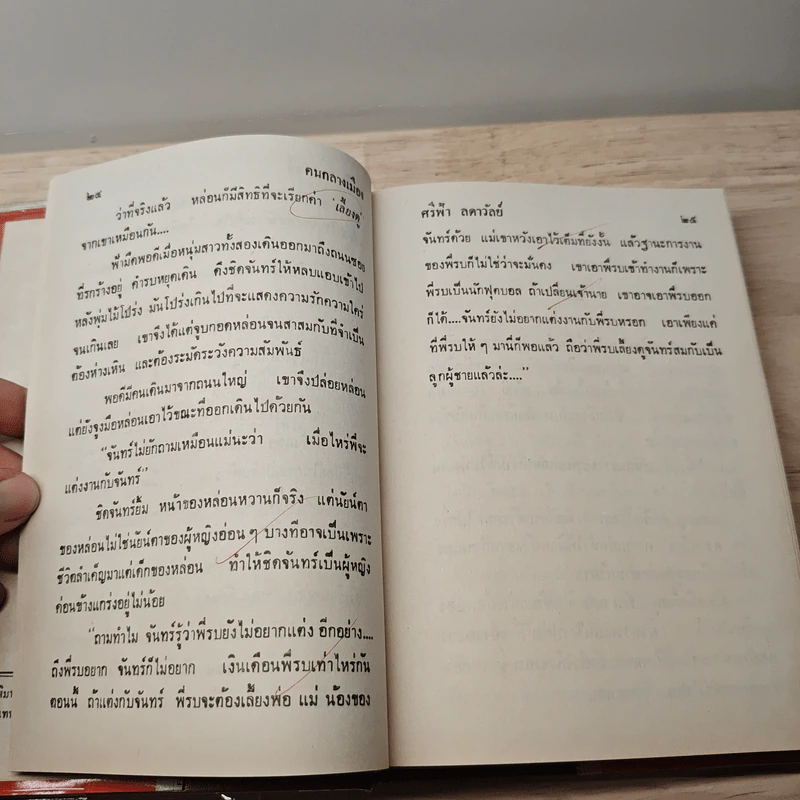 ๒๔
คนกลางเมือง
ว่าที่จริงแล้ว หล่อนก็มีสิทธิที่จะเรียกค่า "เลี้ยงดู"
จากเขาเหมือนกัน....
ฟ้ามืดพอดีเมื่อหนุ่มสาวทั้งสองเดินออกมาถึงถนนซอย
ที่รกร้างอยู่ คำรบหยุดเดิน ดึงชิดจันทร์ให้หลบแอบเข้าไป
หลังพุ่มไม้โปร่ง มันโปร่งเกินไปที่จะแสดงความรักความใคร่
จนเกินเลย เขาจึงได้แต่จูบกอดหล่อนจนสาสมกับที่จำเป็น
ต้องห่างเหิน และต้องระมัดระวังความสัมพันธ์
พอดีมีคนเดินมาจากถนนใหญ่ เขาจึงปล่อยหล่อน
แต่ยังจูงมือหล่อนเอาไว้ขณะที่ออกเดินไปด้วยกัน
"จันทร์ไม่ยักถามเหมือนแม่นะว่า เมื่อไหร่พี่จะ
แต่งงานกับจันทร์"
ชิดจันทร์ยิ้ม หน้าของหล่อนหวานก็จริง แต่นัยน์ตา
ของหล่อนไม่ใช่นัยน์ตาของผู้หญิงอ่อน ๆ บางทีอาจเป็นเพราะ
ชีวิตลำเค็ญมาแต่เด็กของหล่อน ทำให้ชิดจันทร์เป็นผู้หญิง
ค่อนข้างแกร่งอยู่ไม่น้อย
"ถามทำไม จันทร์รู้ว่าพี่รบยังไม่อยากแต่ง อีกอย่าง....
ถึงพี่รบอยาก จันทร์ก็ไม่อยาก เงินเดือนพี่รบเท่าไหร่กัน
ตอนนี้ ถ้าแต่งกับจันทร์ พี่รบจะต้องเลี้ยงพ่อ แม่ น้องของ
ศรีฟ้า ลดาวัลย์
๒๕
จันทร์ด้วย แม่เขาหวังเอาไว้เต็มที่ยังงั้น แล้วฐานะการงาน
ของพี่รบก็ไม่ใช่ว่าจะมั่นคง เขาเอาพี่รบเข้าทำงานก็เพราะ
พี่รบเป็นนักฟุตบอล ถ้าเปลี่ยนเจ้านาย เขาอาจเอาพี่รบออก
ก็ได้....จันทร์ยังไม่อยากแต่งงานกับพี่รบหรอก เอาเพียงแค่
ที่พี่รบให้ ๆ มานี่ก็พอแล้ว ถือว่าพี่รบเลี้ยงดูจันทร์สมกับเป็น
ลูกผู้ชายแล้วล่ะ...."